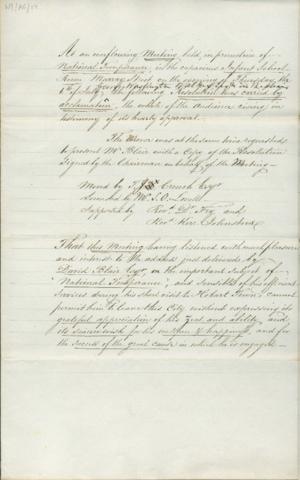 At an overflowing Meeting held in promotion of
National Temperance, in the capacious Infant School
Room Murray Street on the evening of Thursday, the
of July, George Washington Walker Esq. in the Chair
the following Resolution was carried by
acclamation, the whole of the audience rising in
testimony of its hearty approval.
The Mover was at the same time requested
to present Mr. Blair with a Copy of the Resolution
Signed by the Chairman on behalf of the Meeting—
Moved by T. J. Crouch Esqr.
Seconded by Mr. S. O. Lovell
Supported by Revd. Dr. Fry and
Revd. Kerr Johnston.
That this Meeting having listened with much pleasure
and interest to the address just delivered by
David Blair Esqr., on the important subject of
"National Temperance", and sensible of his efficient
Services during his short visit to Hobart Town, cannot
permit him to leave this City without expressing its
grateful appreciation of his Zeal and ability, and
its sincere wish for his welfare & happiness, and for
the success of the great cause in which he is engaged—